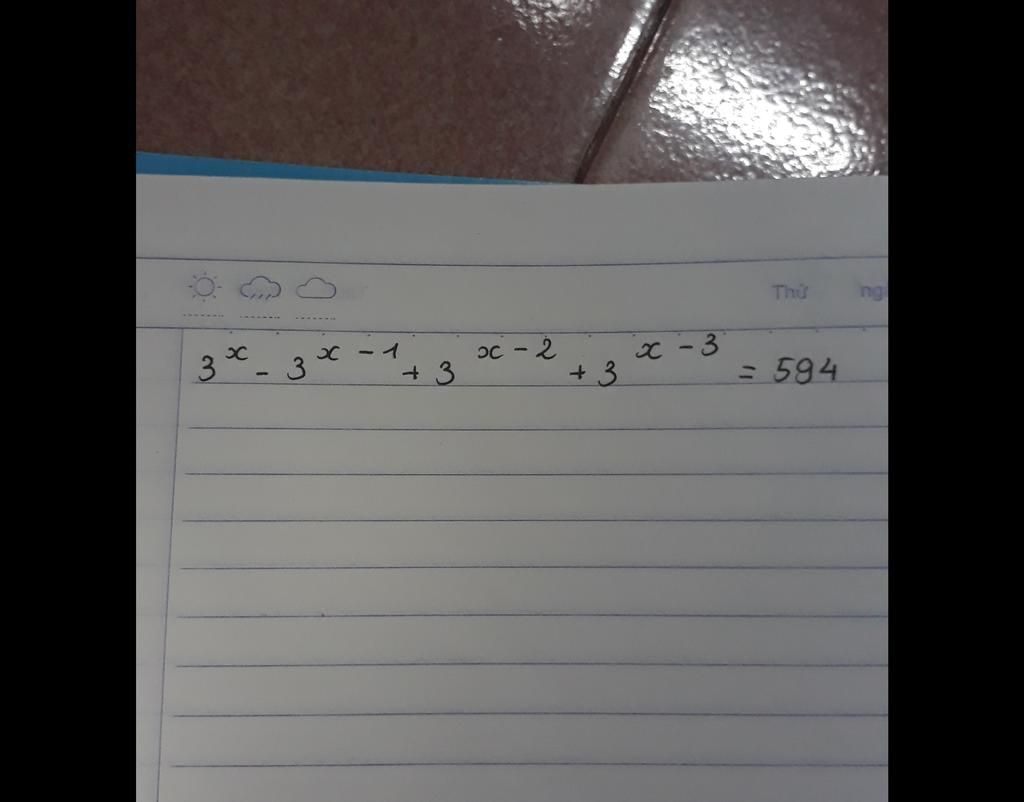 Thứ
3^x - 3^{x-1} + 3^{x-2} + 3^{x-3} = 594